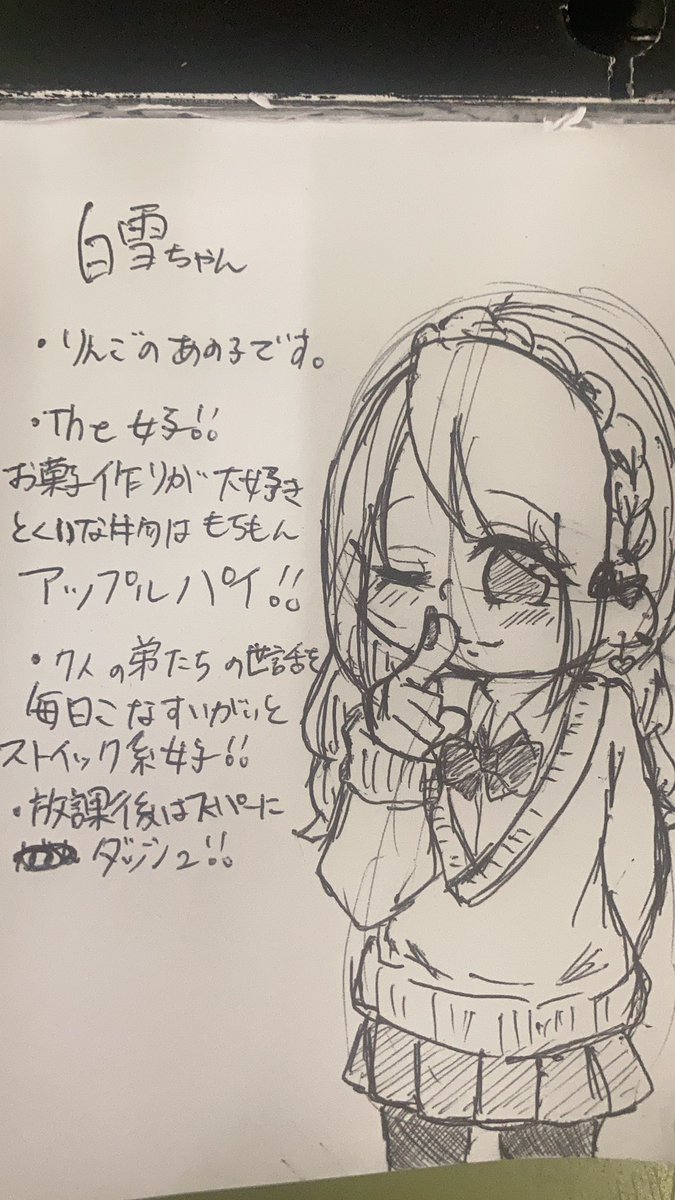 白雪ちゃん
・りんごのあの子です。
・The 女子!!
お菓子作りが大好き
とくいな はもちもん
アップルパイ!!
・7人の弟たちの世話を
毎日こなすいがいと
ストイック系女子!!
・放課後はスーパーに
ダッシュ!!